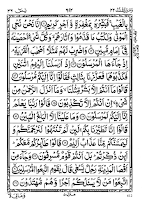 الْغَيْبِ فَبَشِّرْهُ بِمَغْفِرَةٍ وَّاَجْرٍ كَرِيْمٍ اِنَّا نَحْنُ نُحْيِ
الْمَوْتٰى وَنَكْتُبُ مَا قَدَّمُوْا وَاٰثَارَهُمْ وَكُلَّ شَيْءٍ اَحْصَيْنٰهُ
فِيْ اِمَامٍ مُّبِيْنٍ وَاضْرِبْ لَهُمْ مَّثَلًا اَصْحٰبَ الْقَرْيَةِ
اِذْ جَآءَهَا الْمُرْسَلُوْنَ اِذْ اَرْسَلْنَا اِلَيْهِمُ اثْنَيْنِ
فَكَذَّبُوْهُمَا فَعَزَّزْنَا بِثَالِثٍ فَقَالُوْٓا اِنَّآ اِلَيْكُمْ مُّرْسَلُوْنَ قَالُوْا
مَآ اَنْتُمْ اِلَّا بَشَرٌ مِّثْلُنَا وَمَآ اَنْزَلَ الرَّحْمٰنُ مِنْ
شَيْءٍ اِنْ اَنْتُمْ اِلَّا تَكْذِبُوْنَ قَالُوْا رَبُّنَا يَعْلَمُ
اِنَّآ اِلَيْكُمْ لَمُرْسَلُوْنَ وَمَا عَلَيْنَآ اِلَّا الْبَلٰغُ الْمُبِيْنُ
قَالُوْٓا اِنَّا تَطَيَّرْنَا بِكُمْ لَئِنْ لَّمْ تَنْتَهُوْا لَنَرْجُمَنَّكُمْ
وَلَيَمَسَّنَّكُمْ مِّنَّا عَذَابٌ اَلِيْمٌ قَالُوْا طَآئِرُكُمْ مَّعَكُمْ
اَئِنْ ذُكِّرْتُمْ بَلْ اَنْتُمْ قَوْمٌ مُّسْرِفُوْنَ وَجَآءَ
مِنْ اَقْصَا الْمَدِيْنَةِ رَجُلٌ يَّسْعٰى قَالَ يٰقَوْمِ
اتَّبِعُوا الْمُرْسَلِيْنَ اتَّبِعُوْا مَنْ لَّا يَسْئَلُكُمْ اَجْرًا وَّهُمْ مُّهْتَدُوْنَ